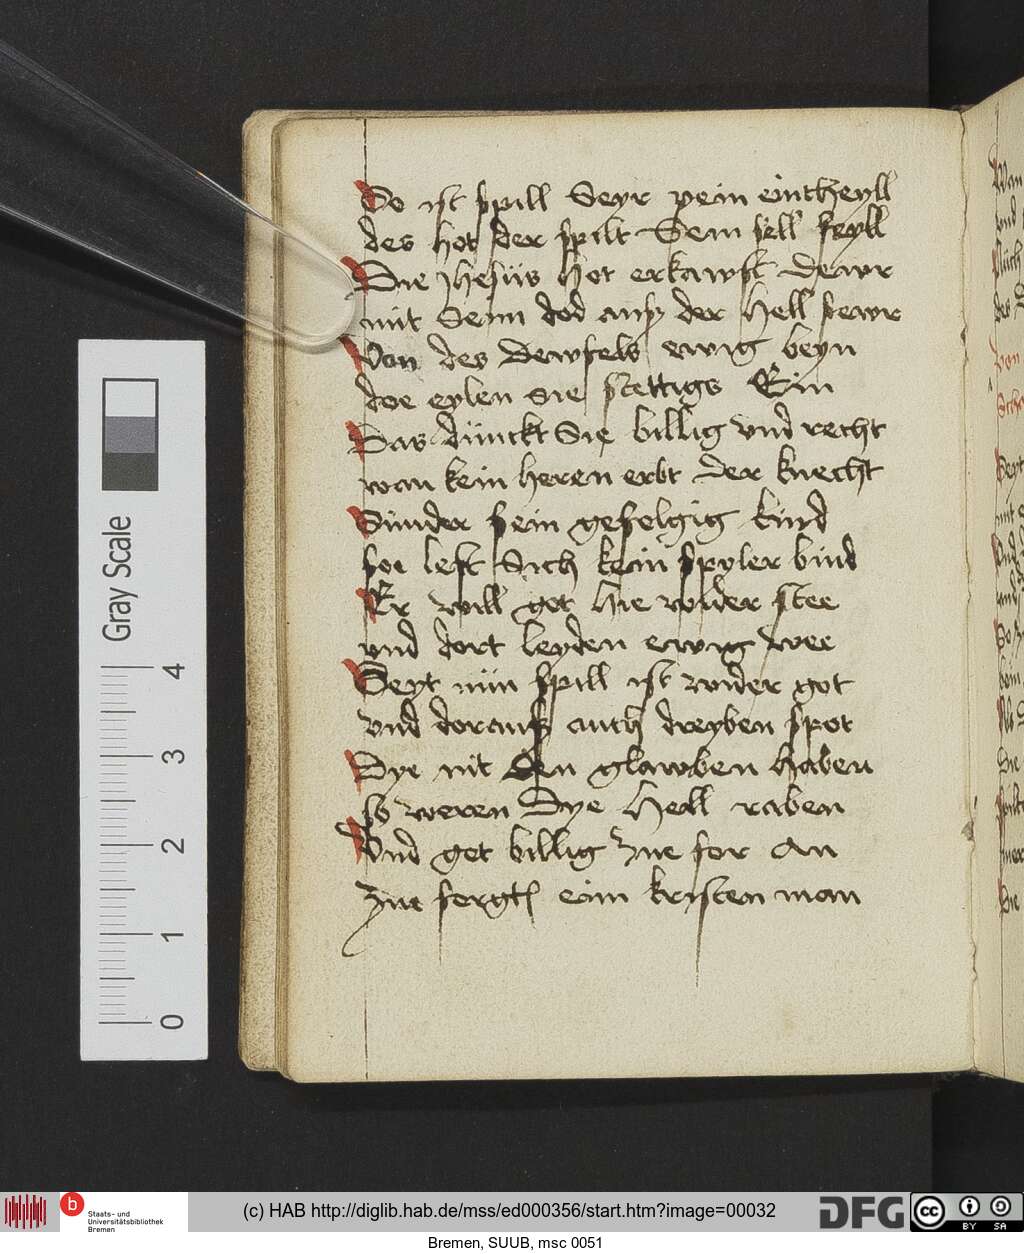 Do ist spill Seyr pein eintheyll
des hot der spilt Sein sell feyll
Die Jhesus Hot erkawft dewr
mit Seim dod auß der Hell fewr
Von des dewfels ewig beyn
doe eylen sie stettigs Ein
Das dünckt Sie billig vnd recht
wan kein heren erbt der knecht
Sünder sein gefelgig kind
soe lest Sich kein spyler bind
Er will got hie wider stee
vnd dort leyden ewig wee
Seyt nün spill ist wider got
vnd dorauß auch dreyben spot
Dye nit den glawben haben
so weren Dye Hell raben
Vnd get billig zue for an
zue fergth eim kristen man
Gray Scale
0 1 2 3 4
b Staats- und
Universitätsbibliothek
Bremen
(c) HAB http://diglib.hab.de/mss/ed000356/start.htm?image=00032
DFG
cc BY SA
Bremen, SUUB, msc 0051